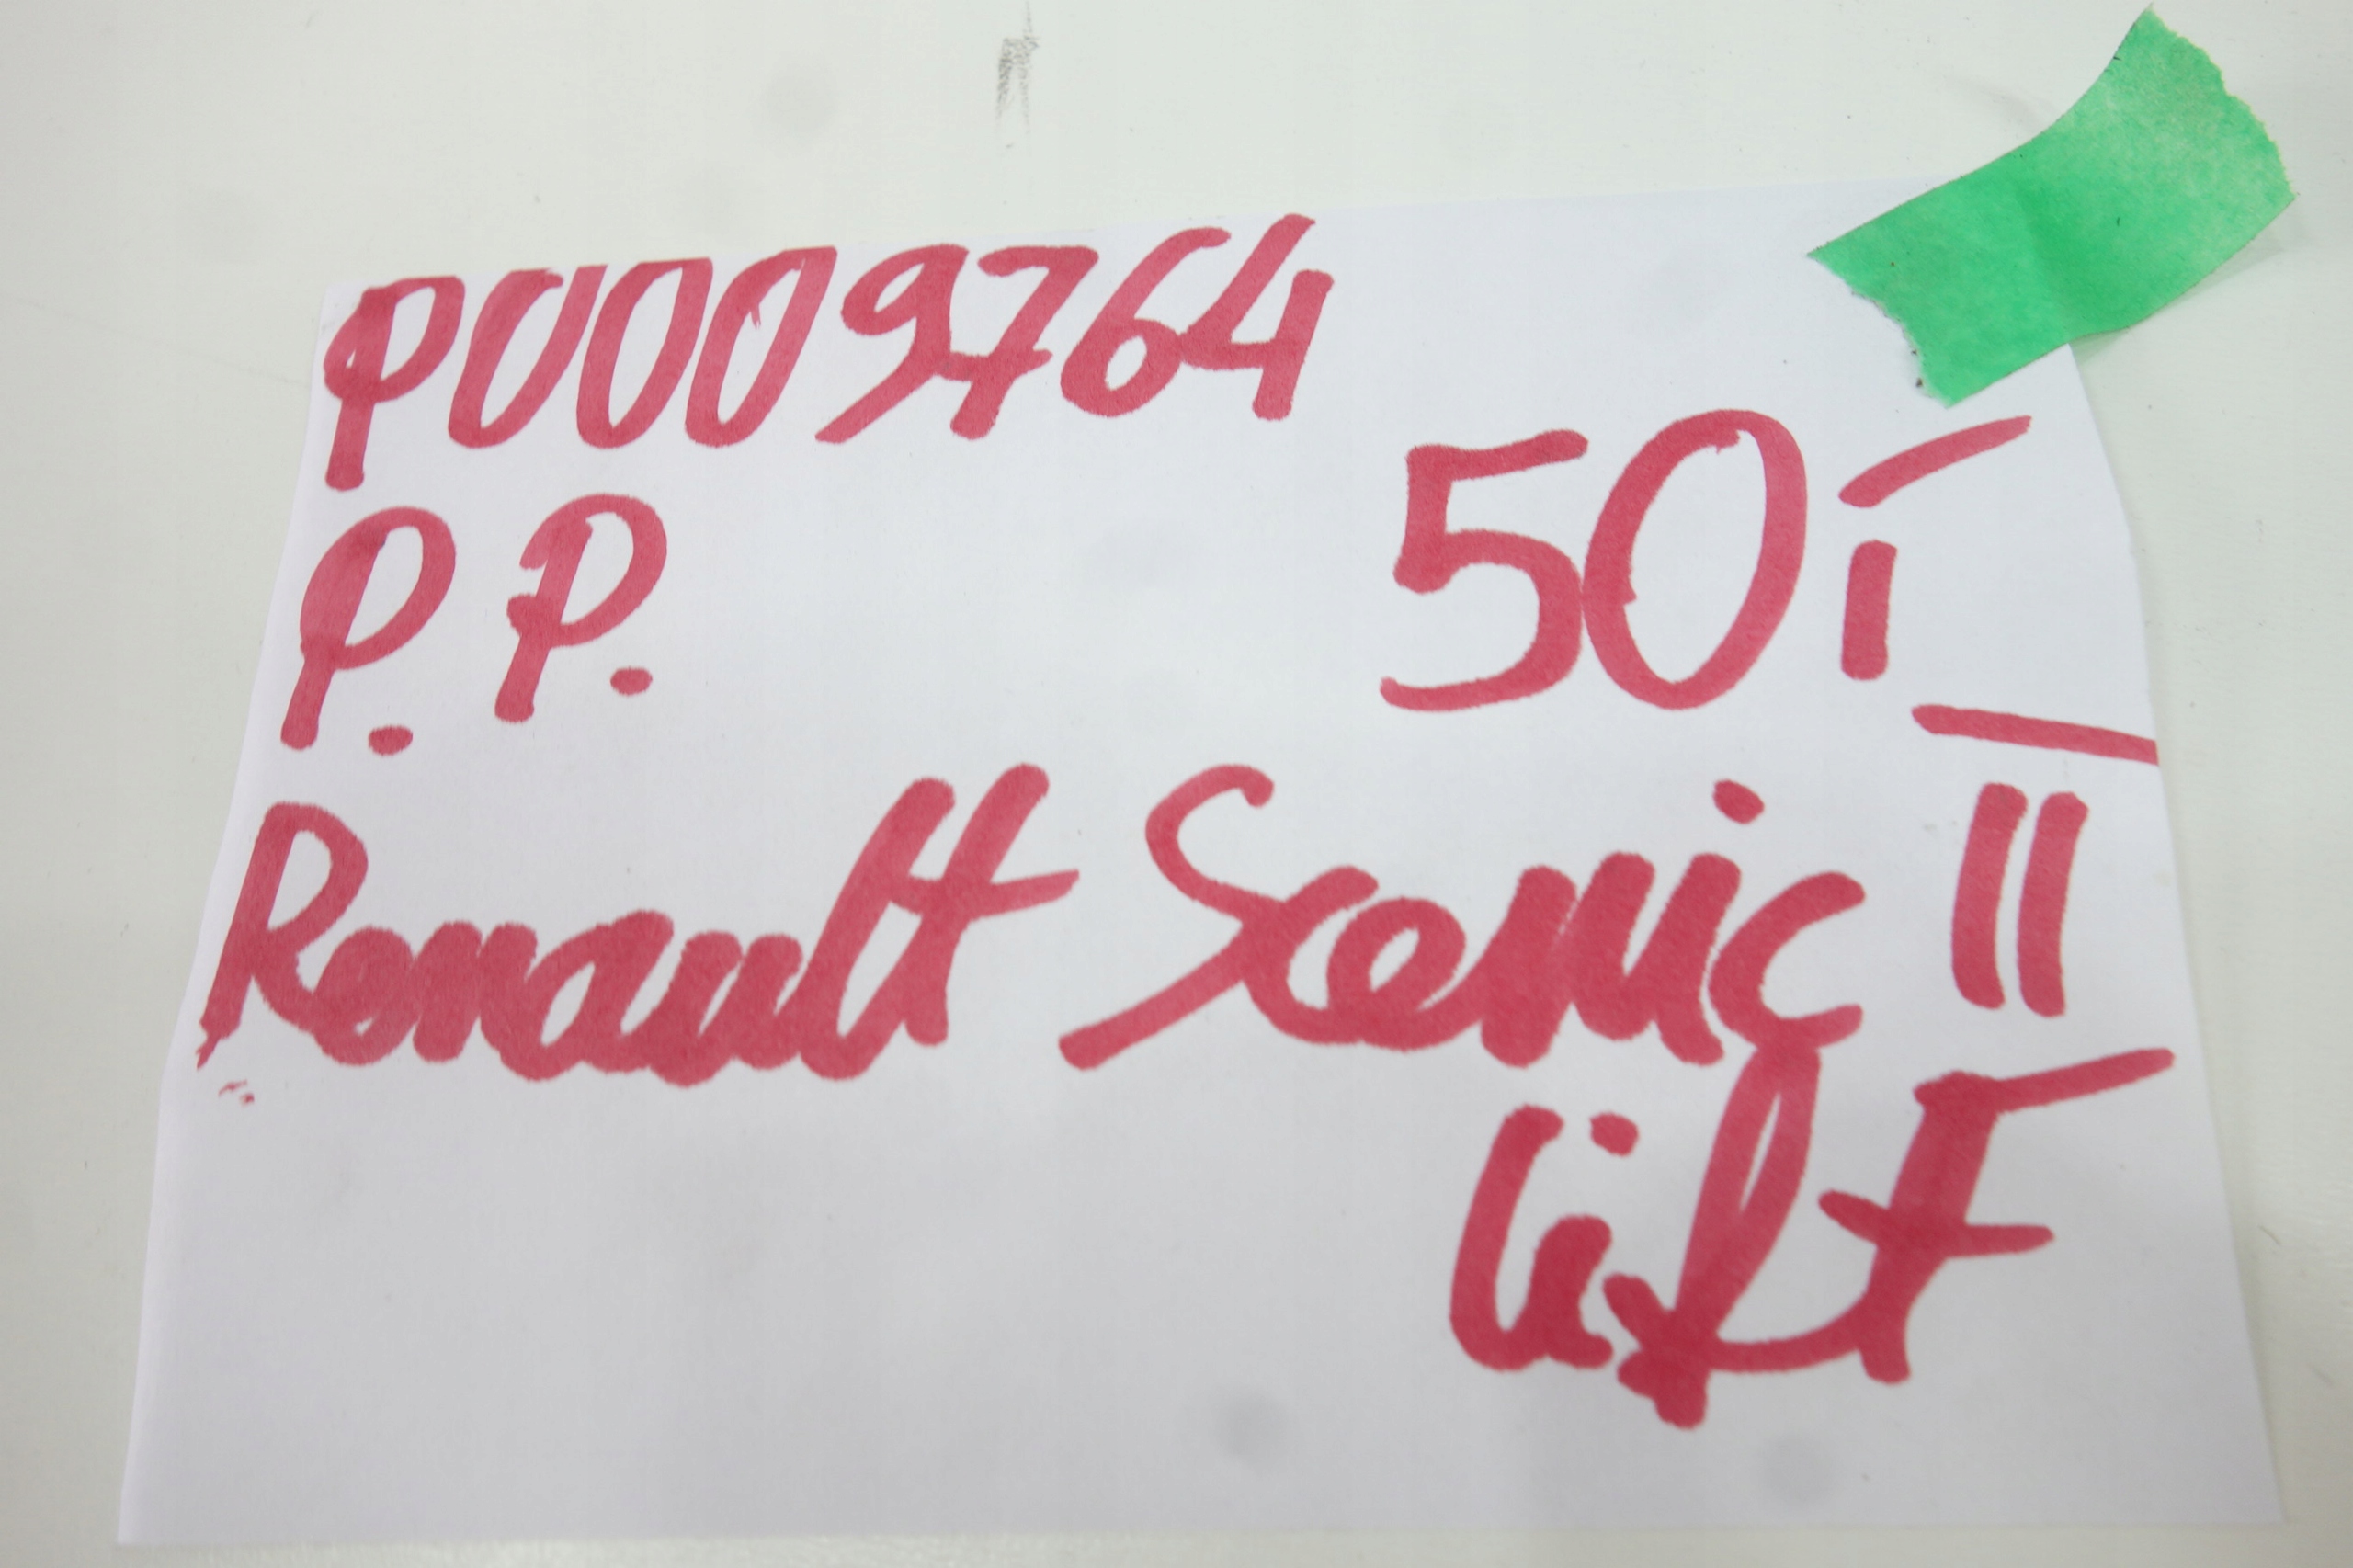 P0009764
P. P. 50,-
Renault Scenic II
lift